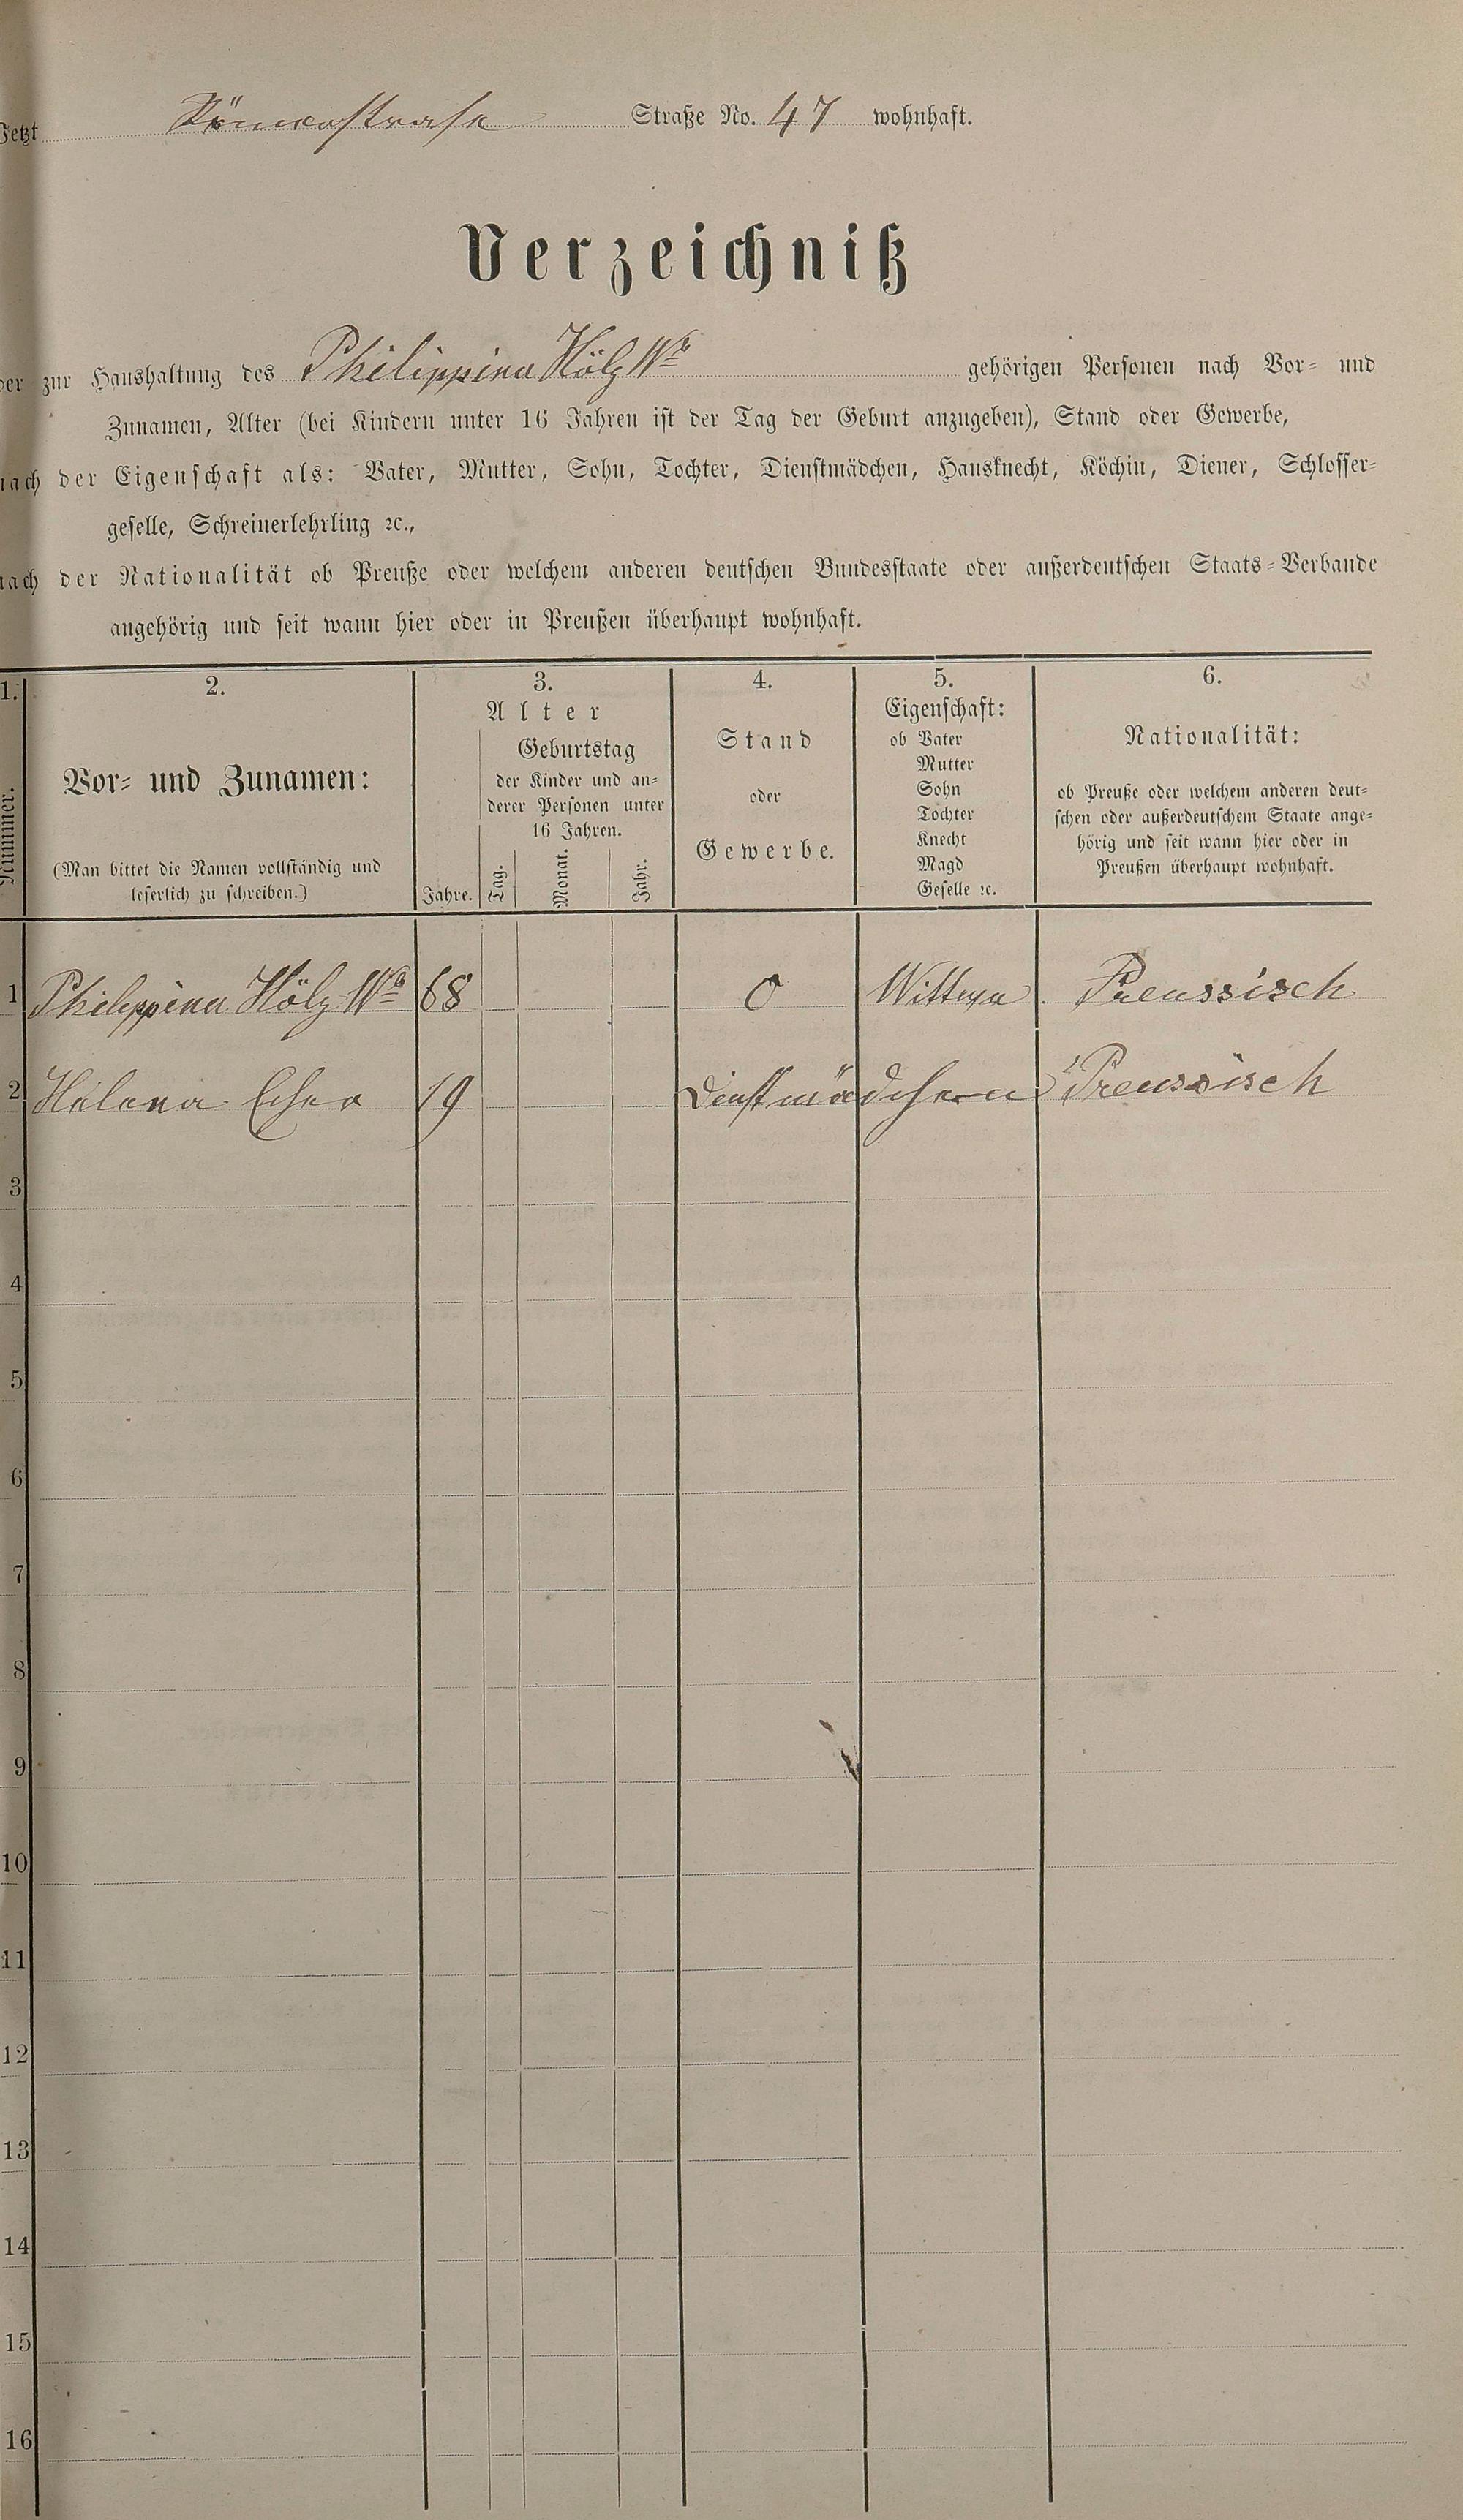 Jetzt Römerstrasse Straße No. 47 wohnhaft.
Verzeichniß
der zur Haushaltung des Philippina Hölz Wwe gehörigen Personen nach Vor- und
Zunamen, Alter (bei Kindern unter 16 Jahren ist der Tag der Geburt anzugeben), Stand oder Gewerbe,
nach der Eigenschaft als: Vater, Mutter, Sohn, Tochter, Dienstmädchen, Hausknecht, Köchin, Diener, Schlosser-
geselle, Schreinerlehrling ꝛc.,
nach der Nationalität ob Preuße oder welchem anderen deutschen Bundesstaate oder außerdeutschen Staats-Verbande
angehörig und seit wann hier oder in Preußen überhaupt wohnhaft.
1.
Nummer.
2.
Vor- und Zunamen:
(Man bittet die Namen vollständig und
leserlich zu schreiben.)
3.
Alter
Jahre.
Geburtstag
der Kinder und an-
derer Personen unter
16 Jahren.
Tag.
Monat.
Jahr.
4.
Stand
oder
Gewerbe.
5.
Eigenschaft:
ob Vater
Mutter
Sohn
Tochter
Knecht
Magd
Geselle ꝛc.
6.
Nationalität:
ob Preuße oder welchem anderen deut-
schen oder außerdeutschem Staate ange-
hörig und seit wann hier oder in
Preußen überhaupt wohnhaft.
1 Philippina Hölz Wwe 68 0 Wittwe Preussisch
2 Helena 19 Dienstmädchen Preussisch
3
4
5
6
7
8
9
10
11
12
13
14
15
16